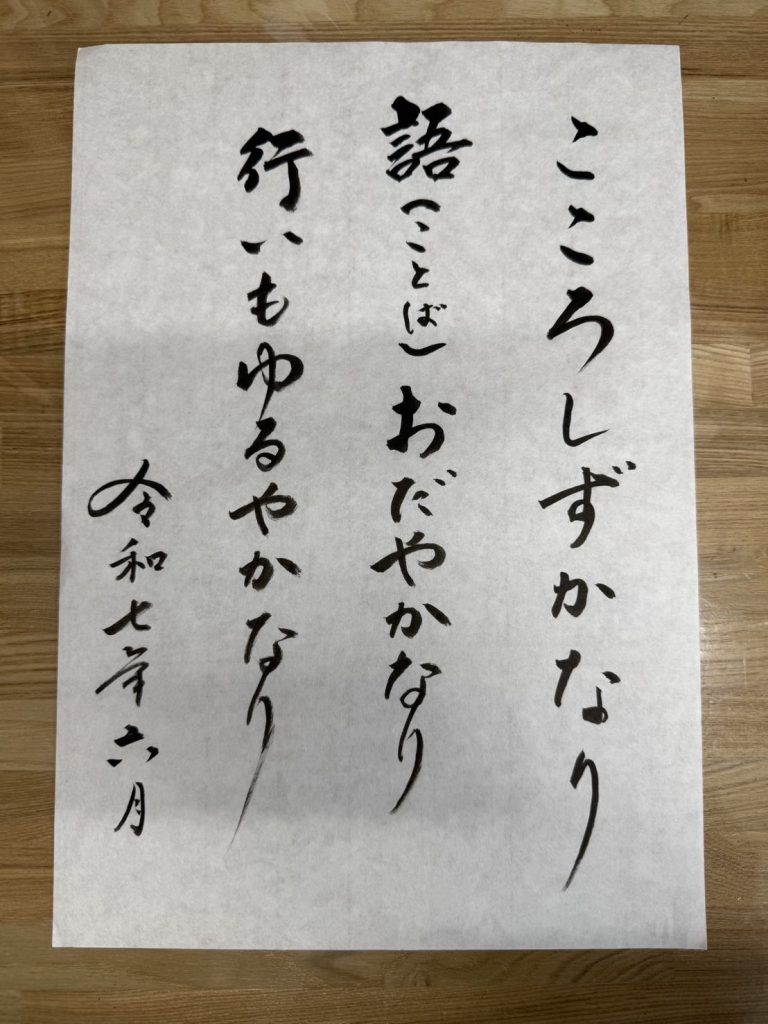 こころしずかなり
語(ことば)おだやかなり
行いもゆるやかなり
令和七年六月